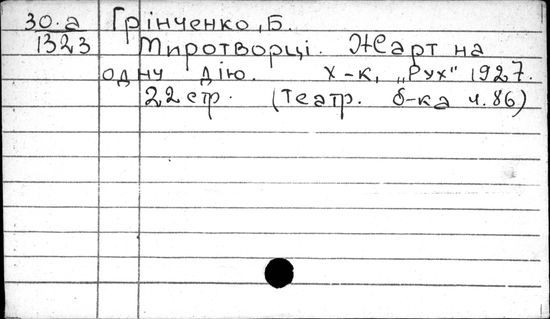 30.а Грінченко, Б.
1323 Миротворці. Жарт на
одну дію. Х-к, „Рух" 1927.
22 стр. (Театр. б-ка ч. 86)